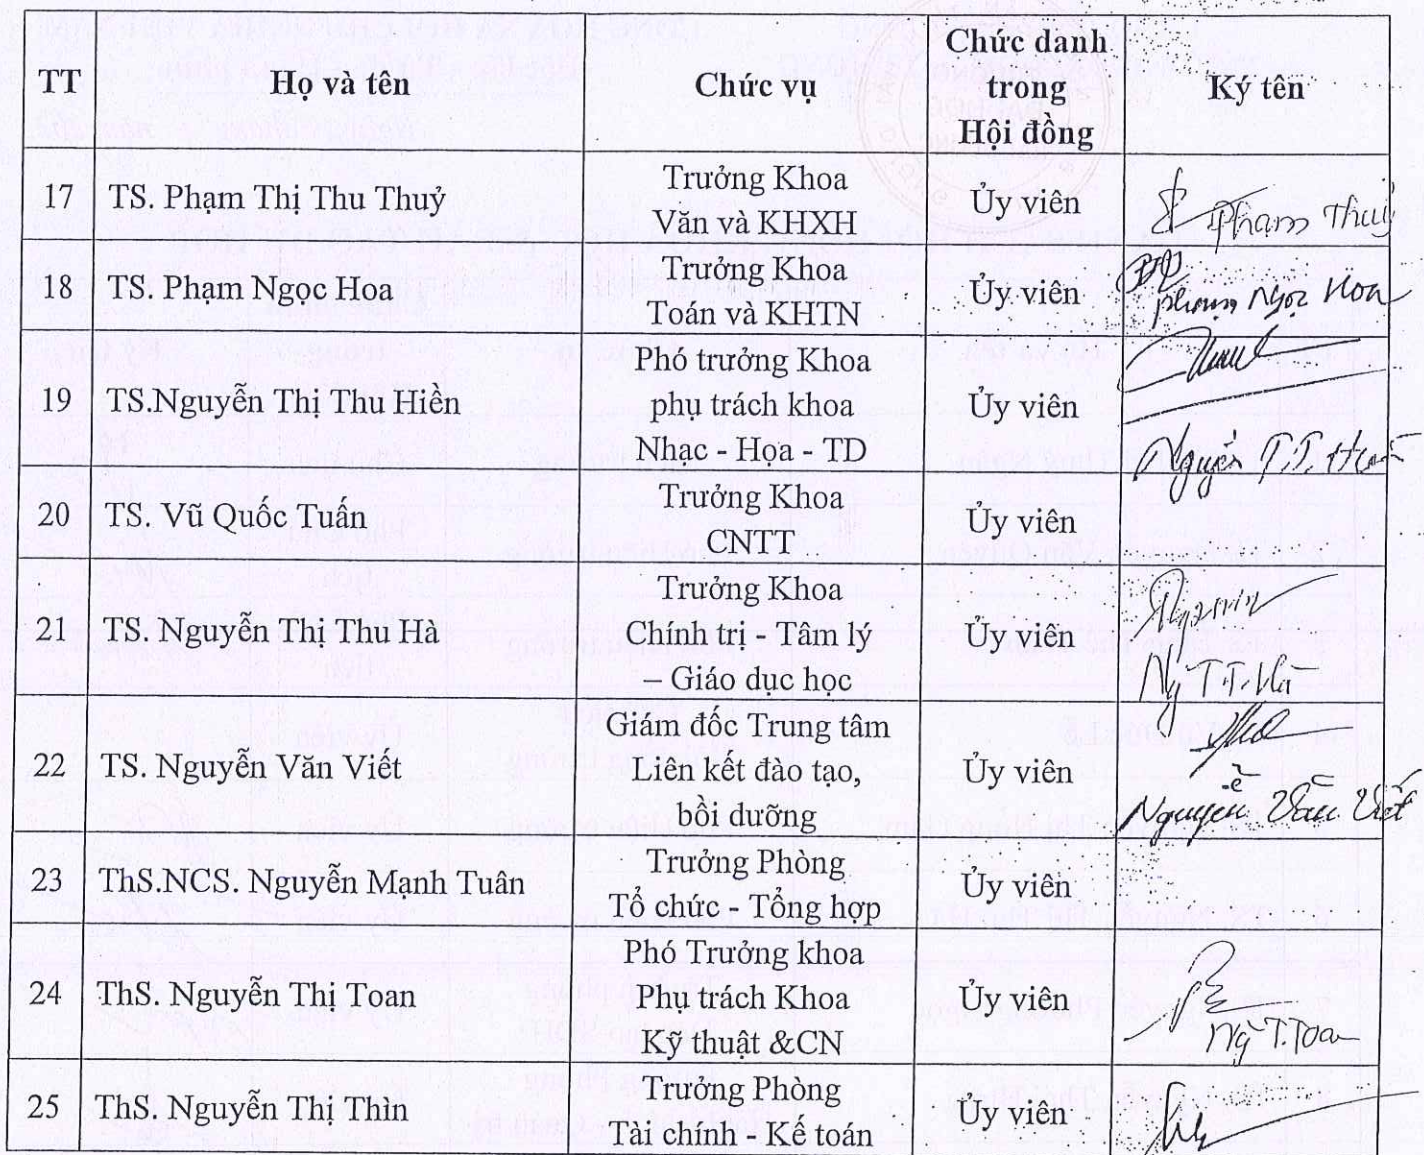 TT
Họ và tên
Chức vụ
Chức danh
trong
Hội đồng
Ký tên
17
TS. Phạm Thị Thu Thuỷ
Trưởng Khoa
Văn và KHXH
Ủy viên
Phạm Thuỷ
18
TS. Phạm Ngọc Hoa
Trưởng Khoa
Toán và KHTN
Ủy viên
Phạm Ngọc Hoa
19
TS.Nguyễn Thị Thu Hiền
Phó trưởng Khoa
phụ trách khoa
Nhạc - Họa - TD
Ủy viên
Nguyễn T.T. Hiền
20
TS. Vũ Quốc Tuấn
Trưởng Khoa
CNTT
Ủy viên
21
TS. Nguyễn Thị Thu Hà
Trưởng Khoa
Chính trị - Tâm lý
– Giáo dục học
Ủy viên
Ng T.T. Hà
22
TS. Nguyễn Văn Viết
Giám đốc Trung tâm
Liên kết đào tạo,
bồi dưỡng
Ủy viên
Nguyễn Văn Viết
23
ThS.NCS. Nguyễn Mạnh Tuân
Trưởng Phòng
Tổ chức - Tổng hợp
Ủy viên
24
ThS. Nguyễn Thị Toan
Phó Trưởng khoa
Phụ trách Khoa
Kỹ thuật &CN
Ủy viên
Ng T.Toan
25
ThS. Nguyễn Thị Thìn
Trưởng Phòng
Tài chính - Kế toán
Ủy viên